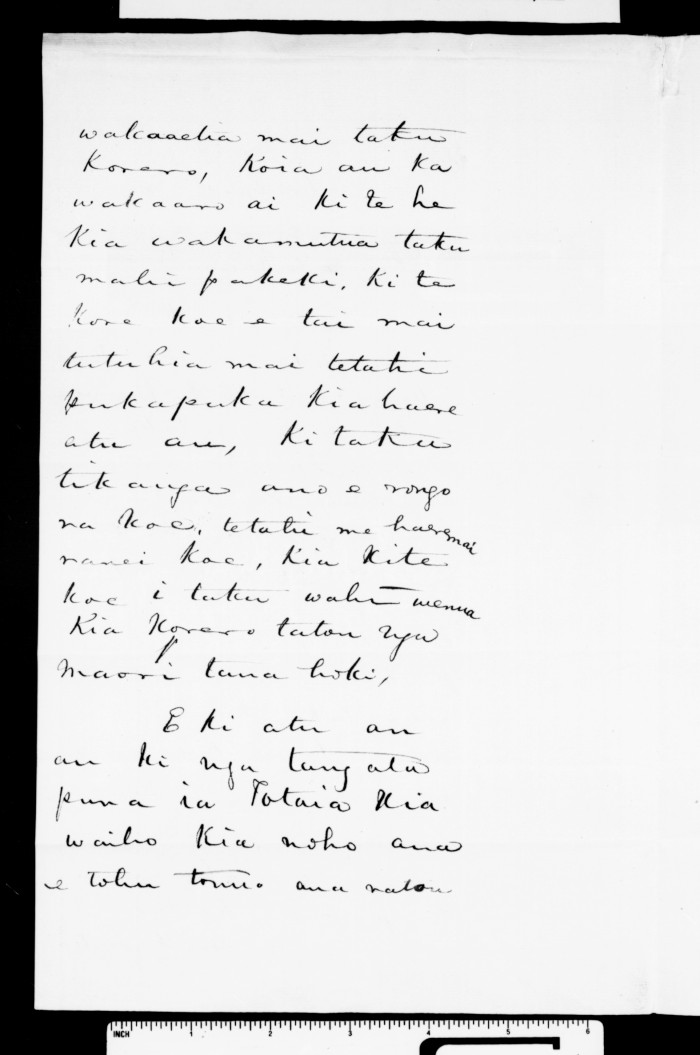 wakaaetia mai taku
Korero, Koia au ka
wakaaro ai ki te he
Kia wakamutua taku
mahi pakeki. Ki te
Kore koe e tai mai
tutuhia mai tetahi
pukapuka Kia haere
atu au, Ki taku
tikanga ano e rongo
na koe, tetahi me haere mai
nanei koe, Kia Kite
koe i taku wahi wenua
Kia Korero tatou nga
maori tana hoki,
E ki atu an
au ki nga tangata
puna ia Totaia Kia
waiho Kia noho ana
e tohu ana ratou
INCH 1 2 3 4 5 6